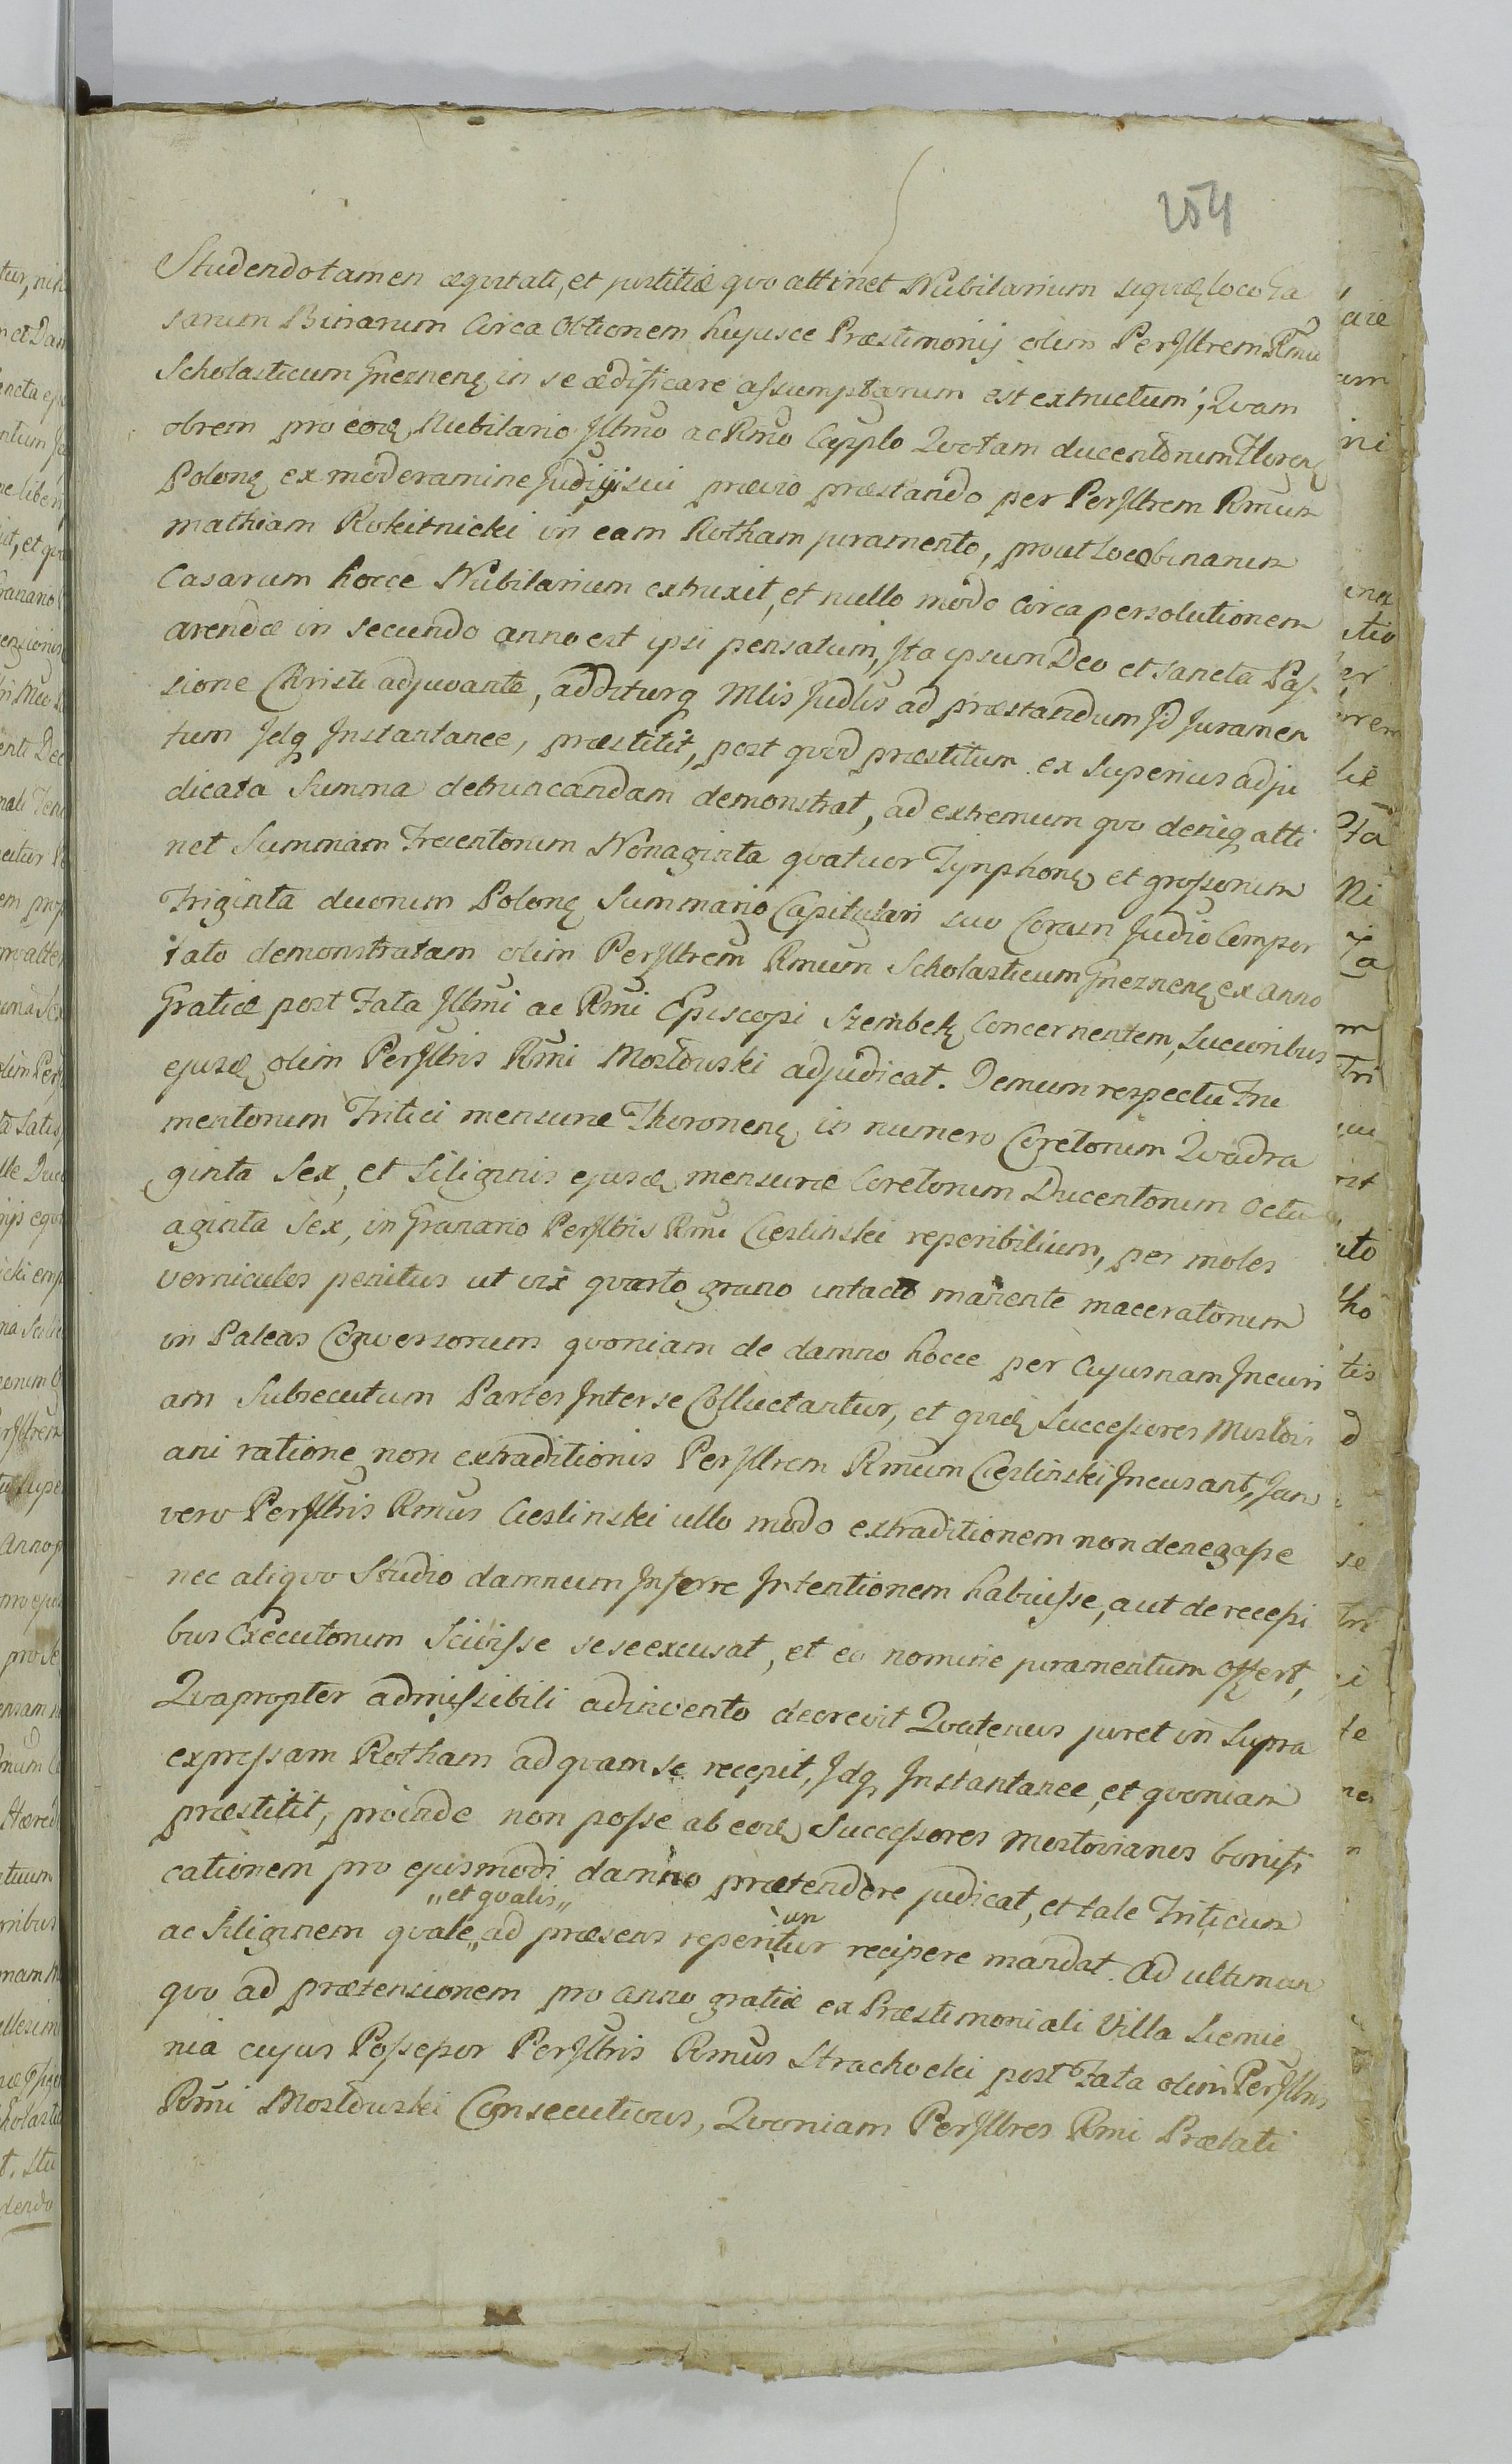 254
Studendo tamen æqvitati, et justitiæ qvo attinet Nubilarium siqvidę loco Ca
sarum Binarum Circa Obtionem hujusce Præstimonij olim Perjllrem Rmu
Scholasticum Gneznenę in se ædificare assumptarum est extructum; Qvam
obrem pro eodę Nubilario Jllmo ac Rmo Capplo Qvotam ducentorum Florenę
Polonę ex moderamine Judicij sui prævio præstando per Perjllrem Rmum
mathiam Rokitnicki in eam Rotham juramento, prout Loco binarum
Casarum hocce Nubilarium extruxit, et nullo modo circa persolutionem
arendæ in secundo anno est ipsi pensatum, Jta ipsum Deo et sancta Pas
sione Christi adjuvante, additurq Mlis Judlis ad præstandum Jd Juramen
tum Jdq Jnstantanee, præstitit, post qvod præstitum ex Superius adju
dicata Summa detruncandam demonstrat, ad extremum qvo deniq atti
net Summam Trecentorum Nonaginta qvatuor Tynphonę et grossorum
Triginta duorum Polonę Summario Capitulari suo Coram Judio Compor
tato demonstratam olim Perjllrem Rmum Scholasticum Gneznenę ex Anno
Gratiæ post Fata Jllmi ac Rmi Episcopi Szembek Concernentem, Sucoribus
ejusdę olim Perjllris Rmi Mostowski adjudicat. Demum respectu Fru
mentorum Tritici mensuræ Thoronenę in numero Coretorum Qvadra
ginta Sex, et Siliginis ejusdę mensuræ Coretorum Ducentorum Octu
aginta Sex, in Granario Perjllris Rmi Cieslinski reperibilium, per moles
verniculos penitus ut vix qvarto grano intacto manente maceratorum
in Paleas Conversorum qvoniam de damno hocce per Cujusnam Jncuri
am Subsecutum Partes Jnter se Colluctantur, et qvidę Successores Mostovi
ani ratione non extraditionis Perjllrem Rmum Cieslinski Jncusant, Jam
vero Perjllris Rmus Cieslinski ullo modo extraditionem non denegasse
nec aliqvo Studio damnum Jnferre Jntentionem habuisse, aut de recessi
bus Executorum Scivisse sese excusat, et eo nomine juramentum offert,
Qvapropter admissibili adinvento decrevit Qvatenus juret in Supra
expressam Rotham ad qvam se recepit, Jdq Jnstantanee, et qvoniam
præstitit, proinde non posse ab eodę Successores Mostovianos bonifi
cationem pro ejusmodi damno prætendere judicat, et tale Triticum
ac Siliginem qvale „et qvalis„ ad præsens reperiuntur recipere mandat. Ad ultimum
qvo ad prætensionem pro Anno gratiæ ex Præstimoniali Villa Siemie
nia cujus Possessor Perjllris Rmus Strachocki post Fata olim Perjllris
Rmi Mostowski Consecutivus, Qvoniam Perjllres Rmi Prælati